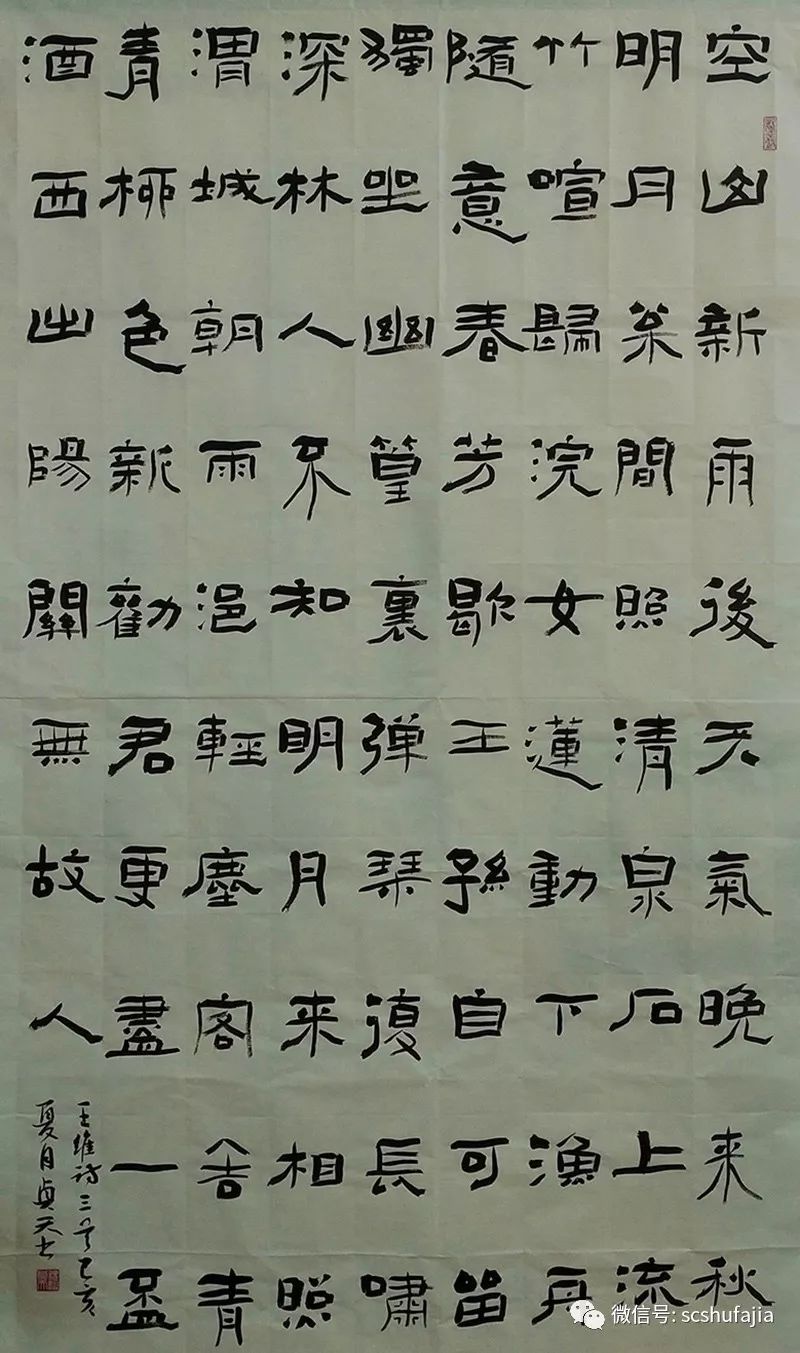 空山新雨後天氣晚来秋
明月枀間照清泉石上流
竹喧歸浣女蓮動下漁舟
隨意春芳歇王孫自可留
獨坐幽篁裏弹琴復長嘯
深林人不知明月来相照
渭城朝雨浥輕塵客舍青
青柳色新勸君更盡一盃
酒西出陽關無故人
王維詩三首己亥
夏月貞天书
微信号: scshufajia